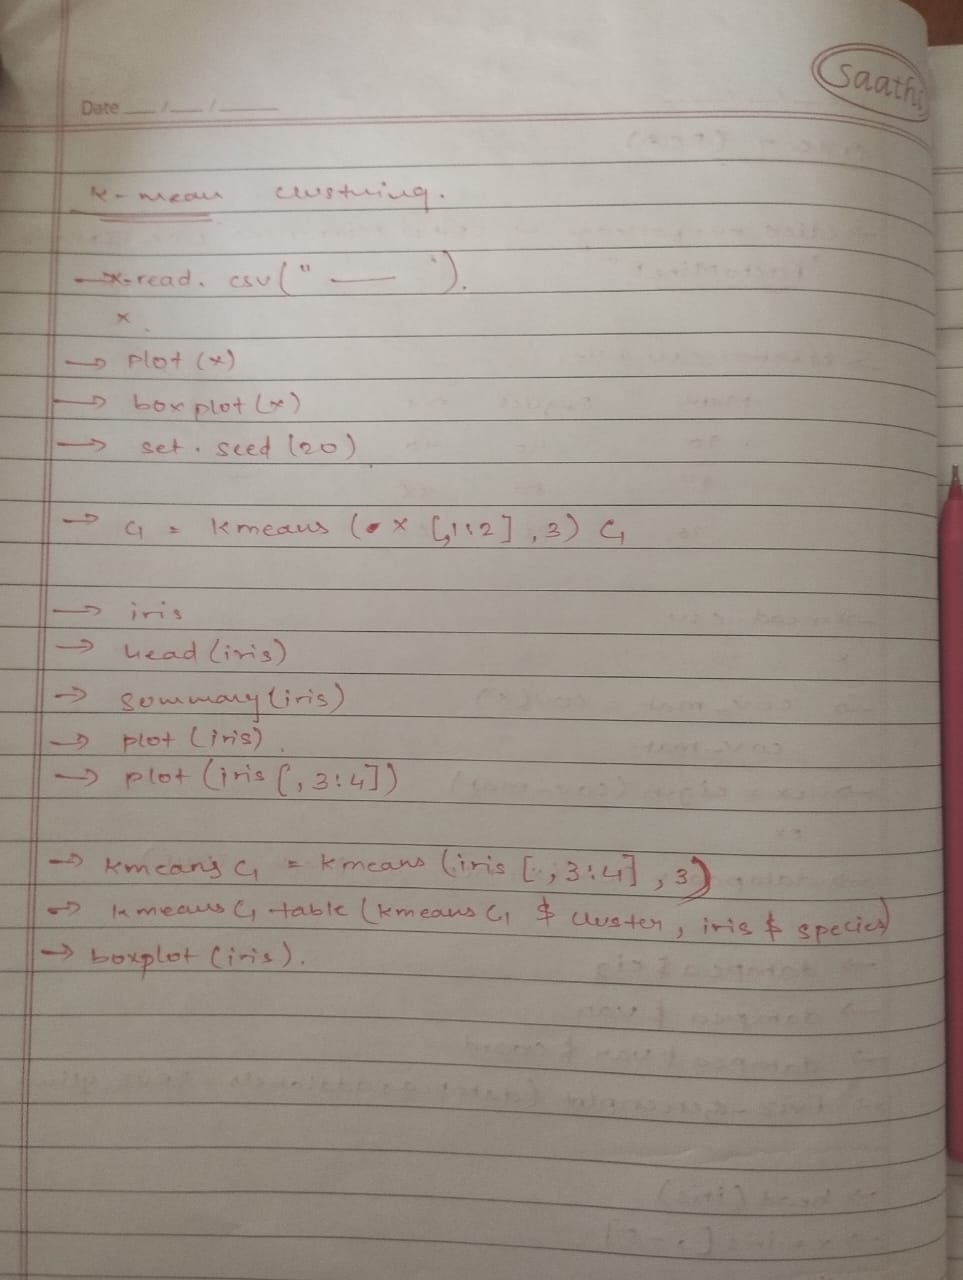 saathi
Date __/__/____
K-mean clustring.
x=read. csv(" — ").
x.
→ plot (x)
→ boxplot (x)
→ set. seed (20)
→ C1 = kmeans (x [,1:2] ,3) C1
→ iris
→ head (iris)
→ summary (iris)
→ plot (iris)
→ plot (iris [, 3:4])
→ kmeans C1 = kmeans (iris [, 3:4] , 3)
→ kmeans C1 table (kmeans C1 $ cluster, iris $ species)
→ boxplot (iris).